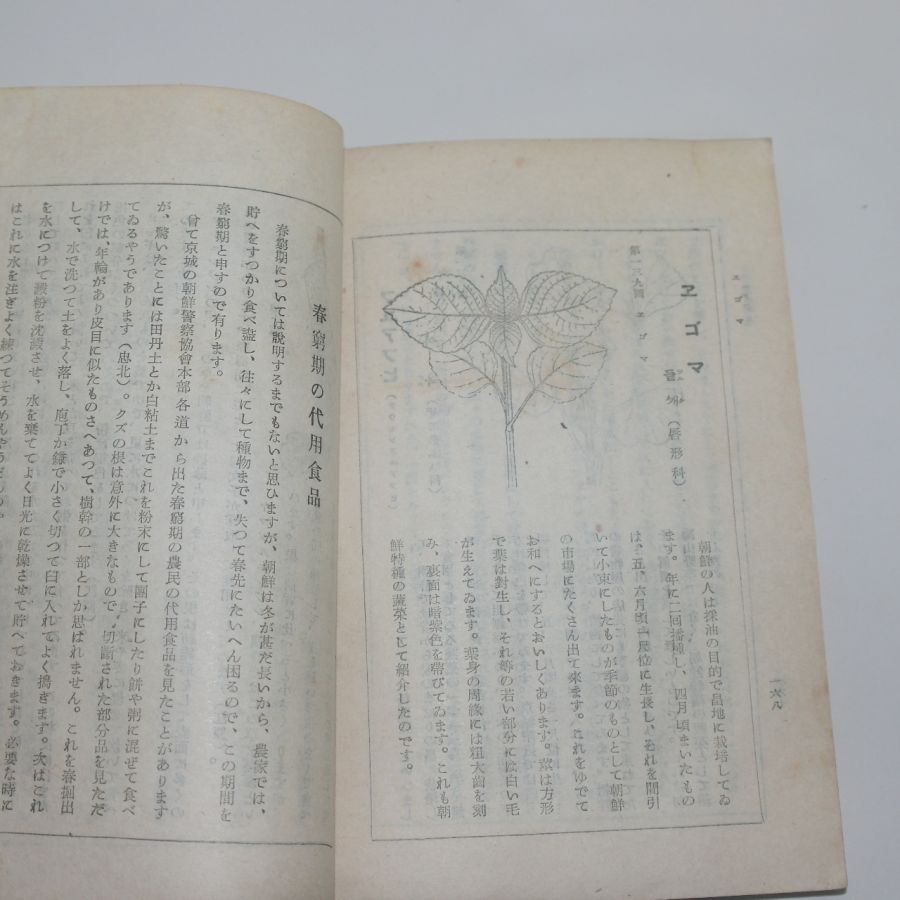 ヱゴマ
一六八
ヱゴマ
들깨（脣形科）
第一三九図　ヱゴマ
朝鮮の人は採油の目的で畠地に栽培してゐ
ます。年に二回播種し、四月頃まいたもの
は、五、六月頃一尺位に生長し、それを間引
いて小束にしたものが季節のものとして朝鮮
の市場にたくさん出て来ます。これをゆでて
お和へにするとおいしくあります。莖は方形
で葉は對生し、それ等の若い部分には白い毛
が生えてゐます。葉身の周緣には粗大齒を刻
み、裏面は暗紫色を帶びてゐます。これも朝
鮮特種の蔬菜として紹介したのです。
春窮期の代用食品
春窮期については說明するまでもないと思ひますが、朝鮮は冬が甚だ長いから、農家では、
貯へをすつかり食べ盡し、往々にして種物まで、失つて春先にたいへん困るので、この期間を
春窮期と申すので有ります。
曾て京城の朝鮮警察協會本部各道から出た春窮期の農民の代用食品を見たことがあります
が、驚いたことには田丹土とか白粘土までこれを粉末にして團子にしたり餅や粥に混ぜて食べ
てゐるやうであります（忠北）。クズの根は意外に大きなもので、切斷された部分品を見ただ
けでは、年輪があり皮目に似たものさへあつて、樹幹の一部としか思ばれません。これを春掘出
して、水で洗つて土をよく落し、庖丁か鎌で小さく切つて臼に入れてよく搗ぎます。次はこれ
を水につけて澱粉を沈澱させ、水を棄ててよく日光に乾燥させて貯へておきます。必要な時に
はこれに水を注ぎよく練つてそうめんや